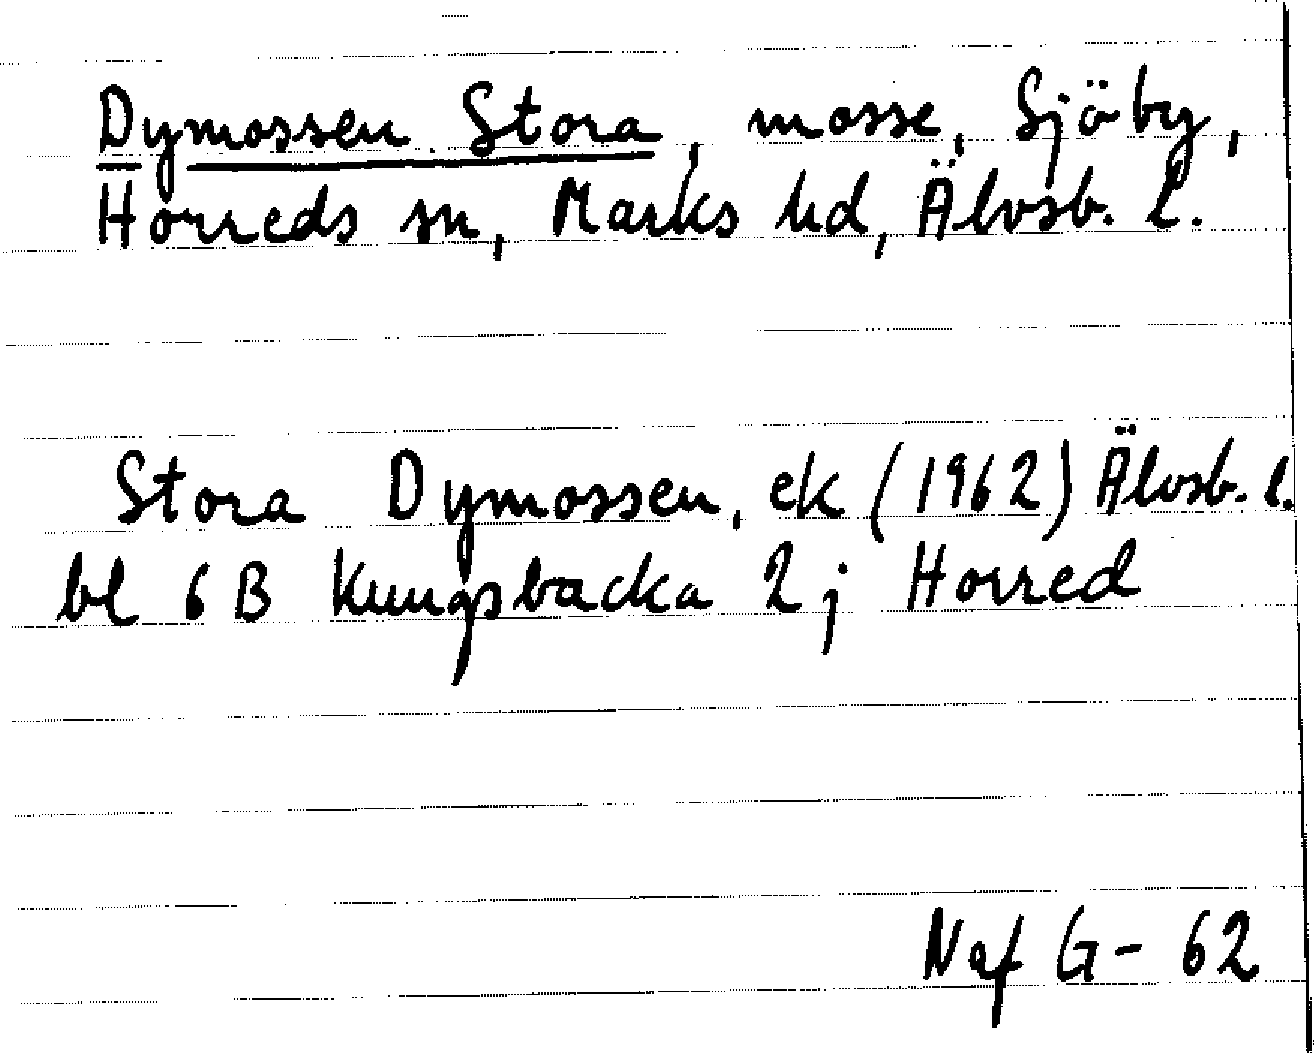 Dymossen Stora, mosse, Sjöby,
Horreds sn, Marks hd, Älvsb. l.
Stora Dymossen, ek (1962) Älvsb. l.
bl 6 B Kungsbacka 2 j Horred
Naf G- 62